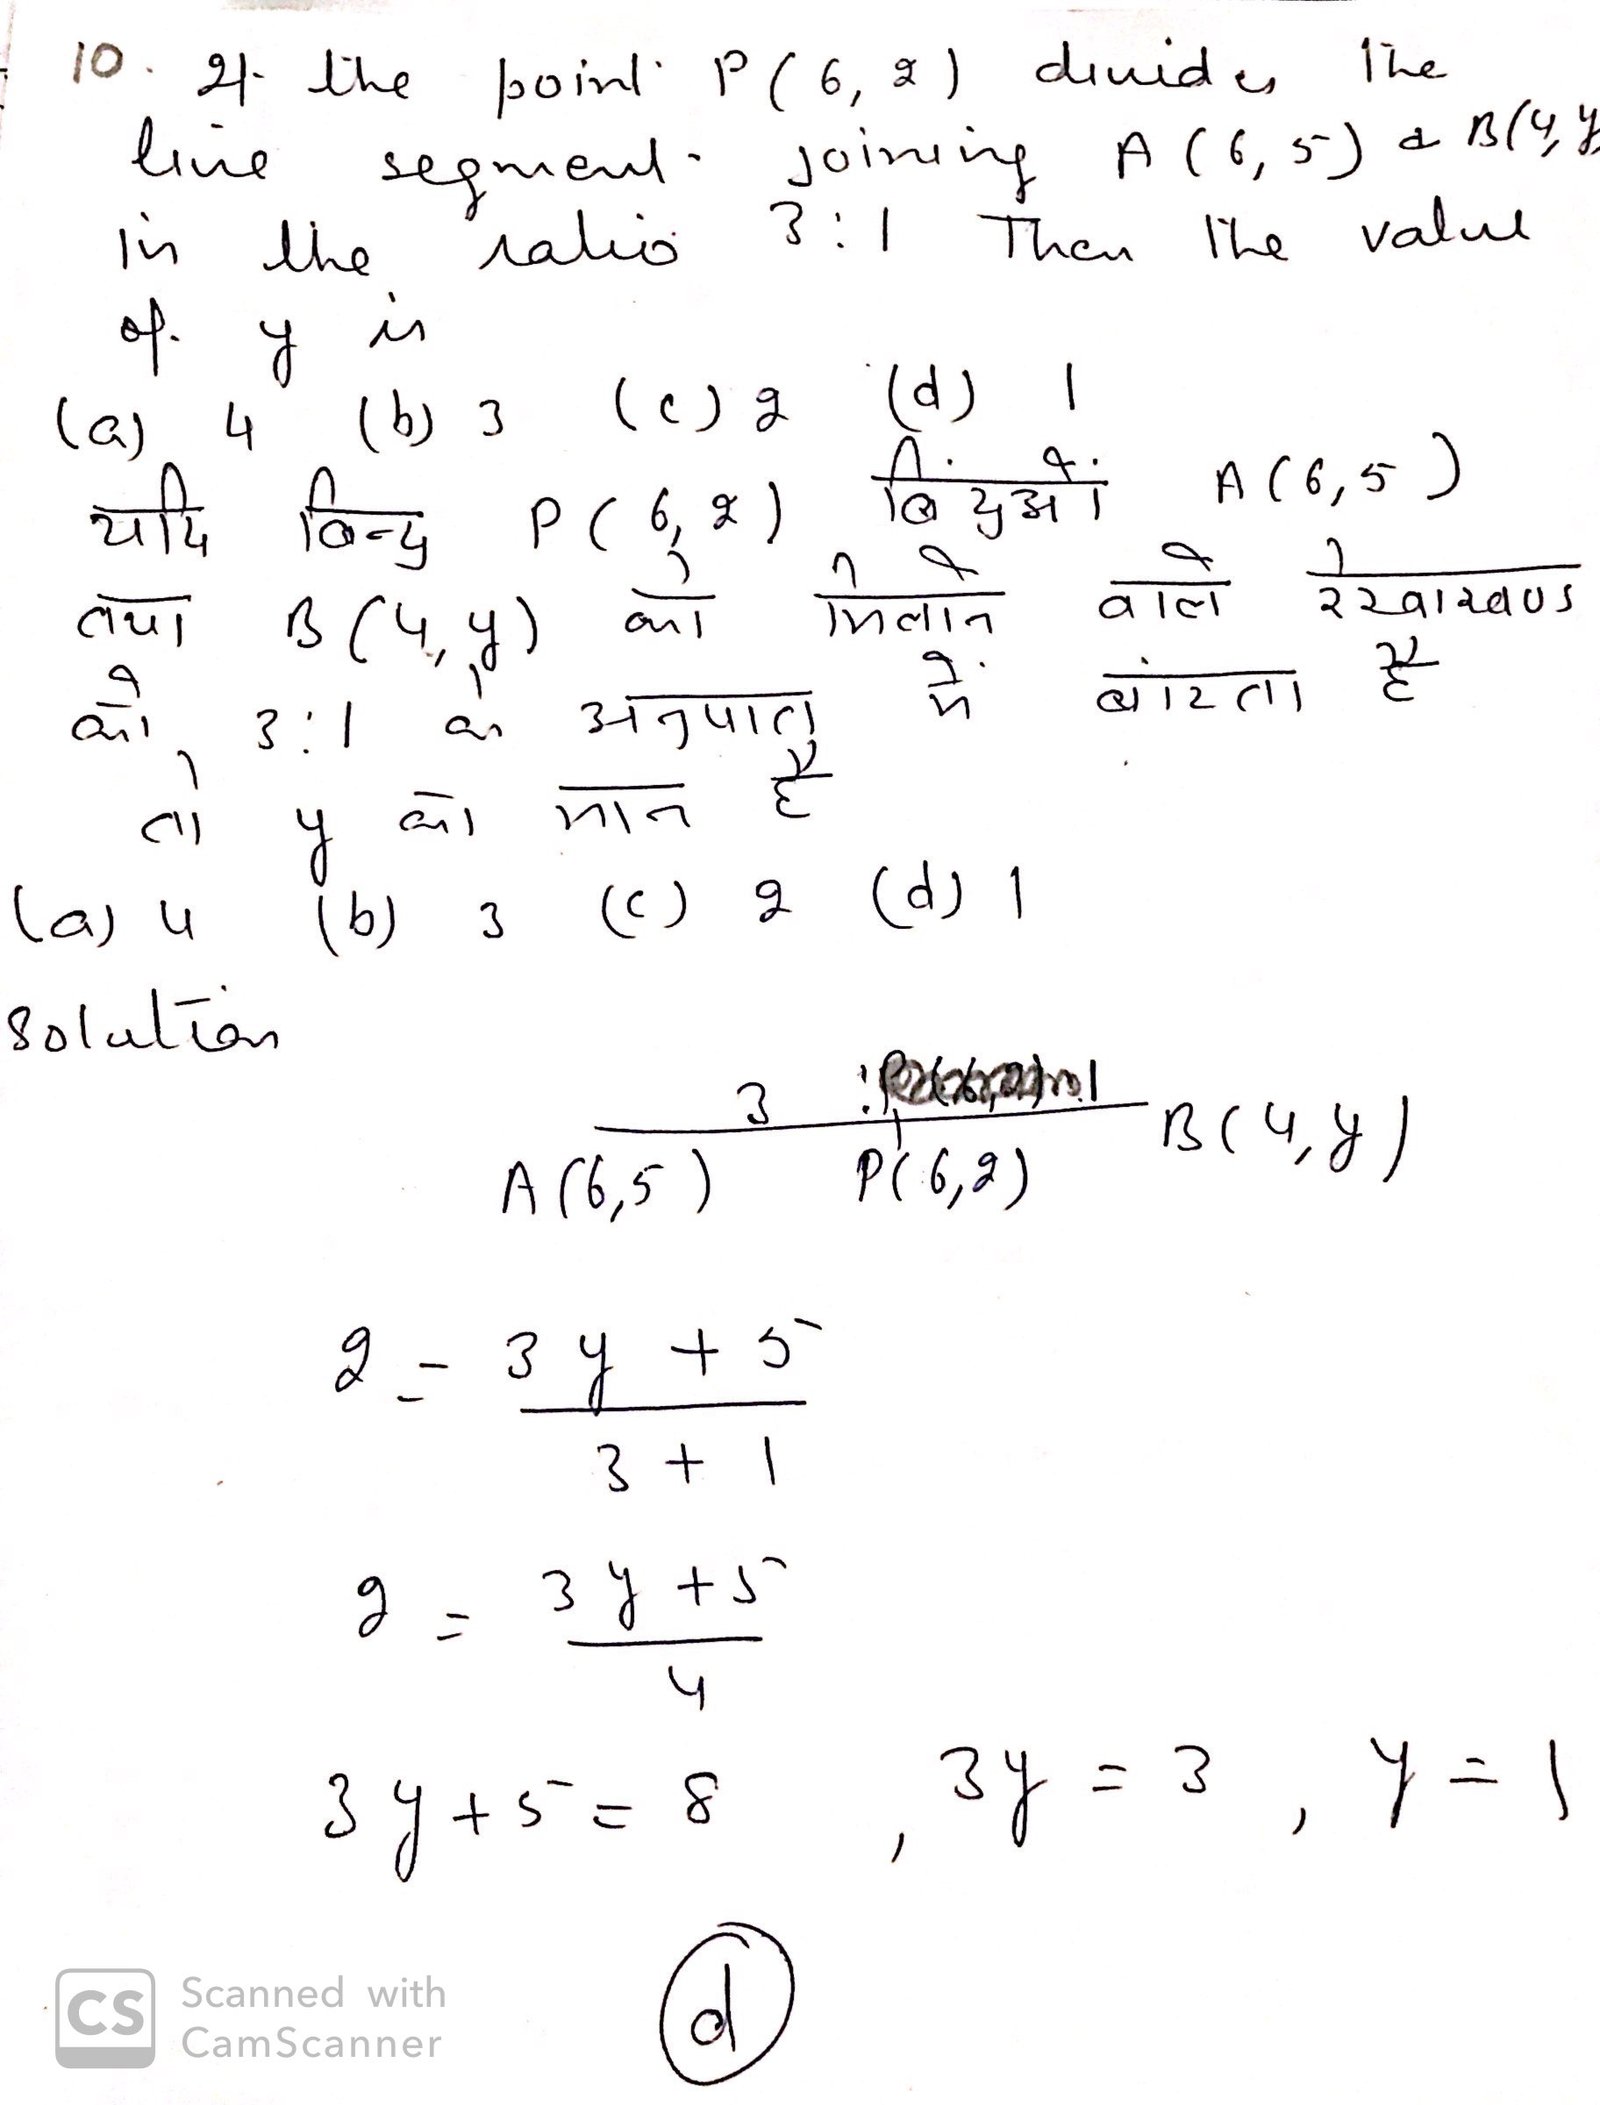 10. If the point P(6, 2) divides the
line segment joining A(6, 5) & B(4, y)
in the ratio 3:1 Then the value
of y is
(a) 4 (b) 3 (c) 2 (d) 1
यदि बिन्दु P(6, 2) बिंदुओं A(6,5)
तथा B(4, y) को मिलाने वाले रेखाखण्ड
को 3:1 के अनुपात में बांटता है
तो y का मान है
(a) 4 (b) 3 (c) 2 (d) 1
Solution
3 : 1
A(6,5) P(6,2) B(4,y)
2 = 3y + 5
3 + 1
2 = 3y + 5
4
3y + 5 = 8 , 3y = 3 , y = 1
d
CS Scanned with
CamScanner